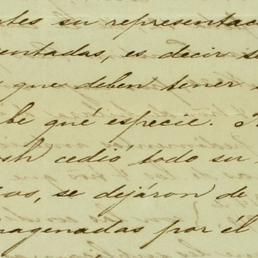 tes su representac
entadas, es decir s
que deben tener
be qué especie.
cedió todo su
os, se dejáron de
agenadas por él